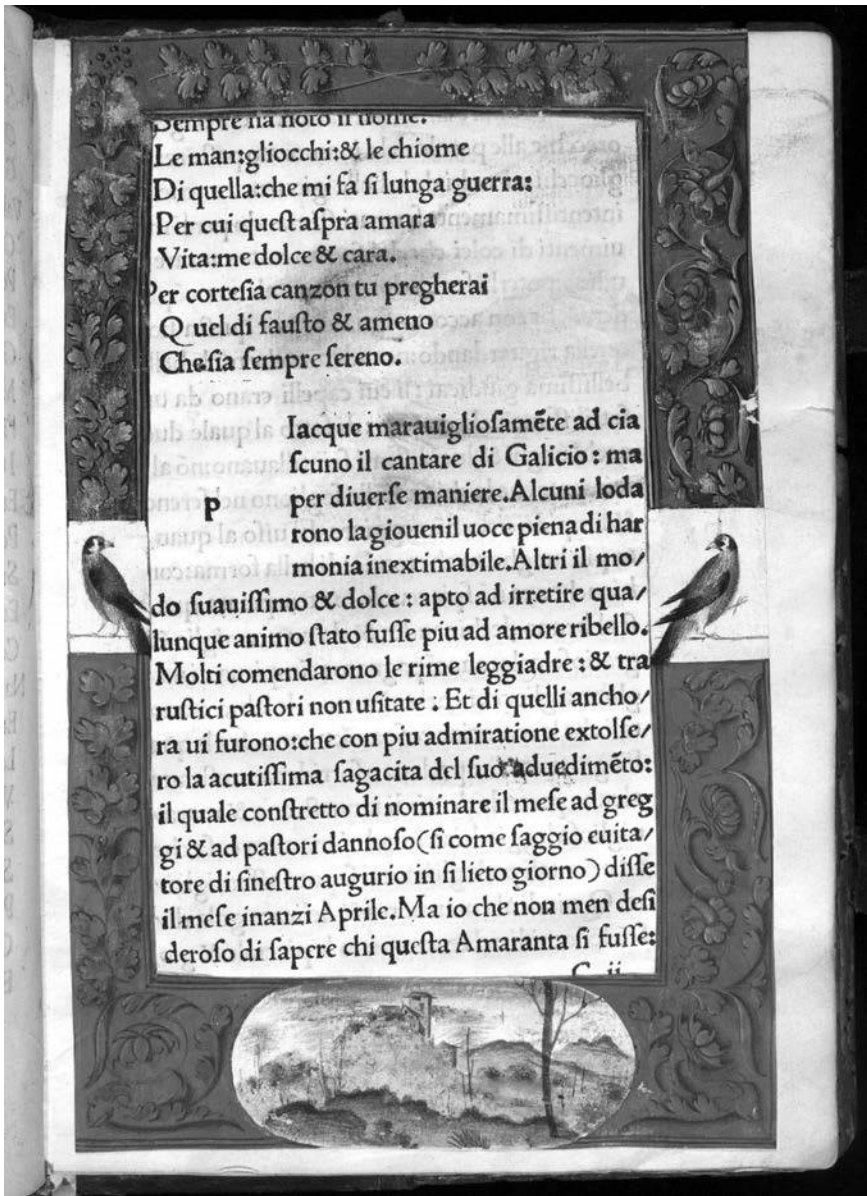 Sempre ha noto il nome:
Le man:gliocchi:& le chiome
Di quella:che mi fa ſi lunga guerra:
Per cui queſt aſpra amara
Vita:me dolce & cara.
Per corteſia canzon tu pregherai
Quel di fauſto & ameno
Che ſia ſempre ſereno.
Iacque marauiglioſamẽte ad cia
ſcuno il cantare di Galicio : ma
p per diuerſe maniere.Alcuni loda
rono la giouenil uoce piena di har
monia inextimabile.Altri il mo/
do ſuauiſſimo & dolce : apto ad irretire qua/
lunque animo ſtato fuſſe piu ad amore ribello.
Molti comendarono le rime leggiadre : & tra
ruſtici paſtori non uſitate : Et di quelli ancho/
ra ui furono:che con piu admiratione extolſe/
ro la acutiſſima ſagacita del ſuo aduedimẽto:
il quale conſtretto di nominare il meſe ad greg
gi & ad paſtori dannoſo(ſi come ſaggio euita/
tore di ſineſtro augurio in ſi lieto giorno) diſſe
il meſe inanzi Aprile.Ma io che non men deſi
deroſo di ſapere chi queſta Amaranta ſi fuſſe:
C ii